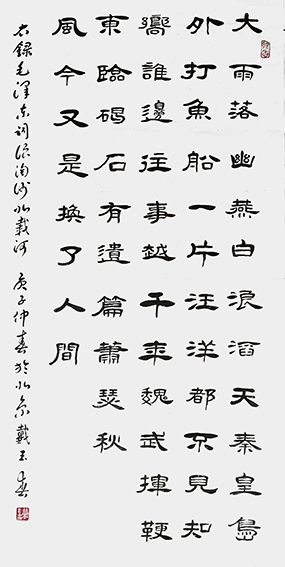 大雨落幽燕白浪滔天秦皇島
外打魚船一片汪洋都不見知
嚮誰邊往事越千年魏武揮鞭
東臨碣石有遺篇蕭瑟秋
風今又是換了人間
右錄毛澤東詞浪淘沙北戴河 庚子仲春於北京戴玉春